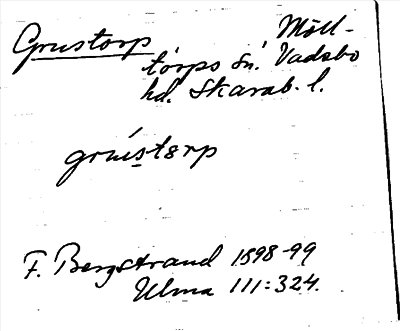 Grustorp Möll-
torps sn. Vadsbo
hd. Skarab. l.
grùstərp
F. Bergstrand 1898-99
Ulma 111:324.